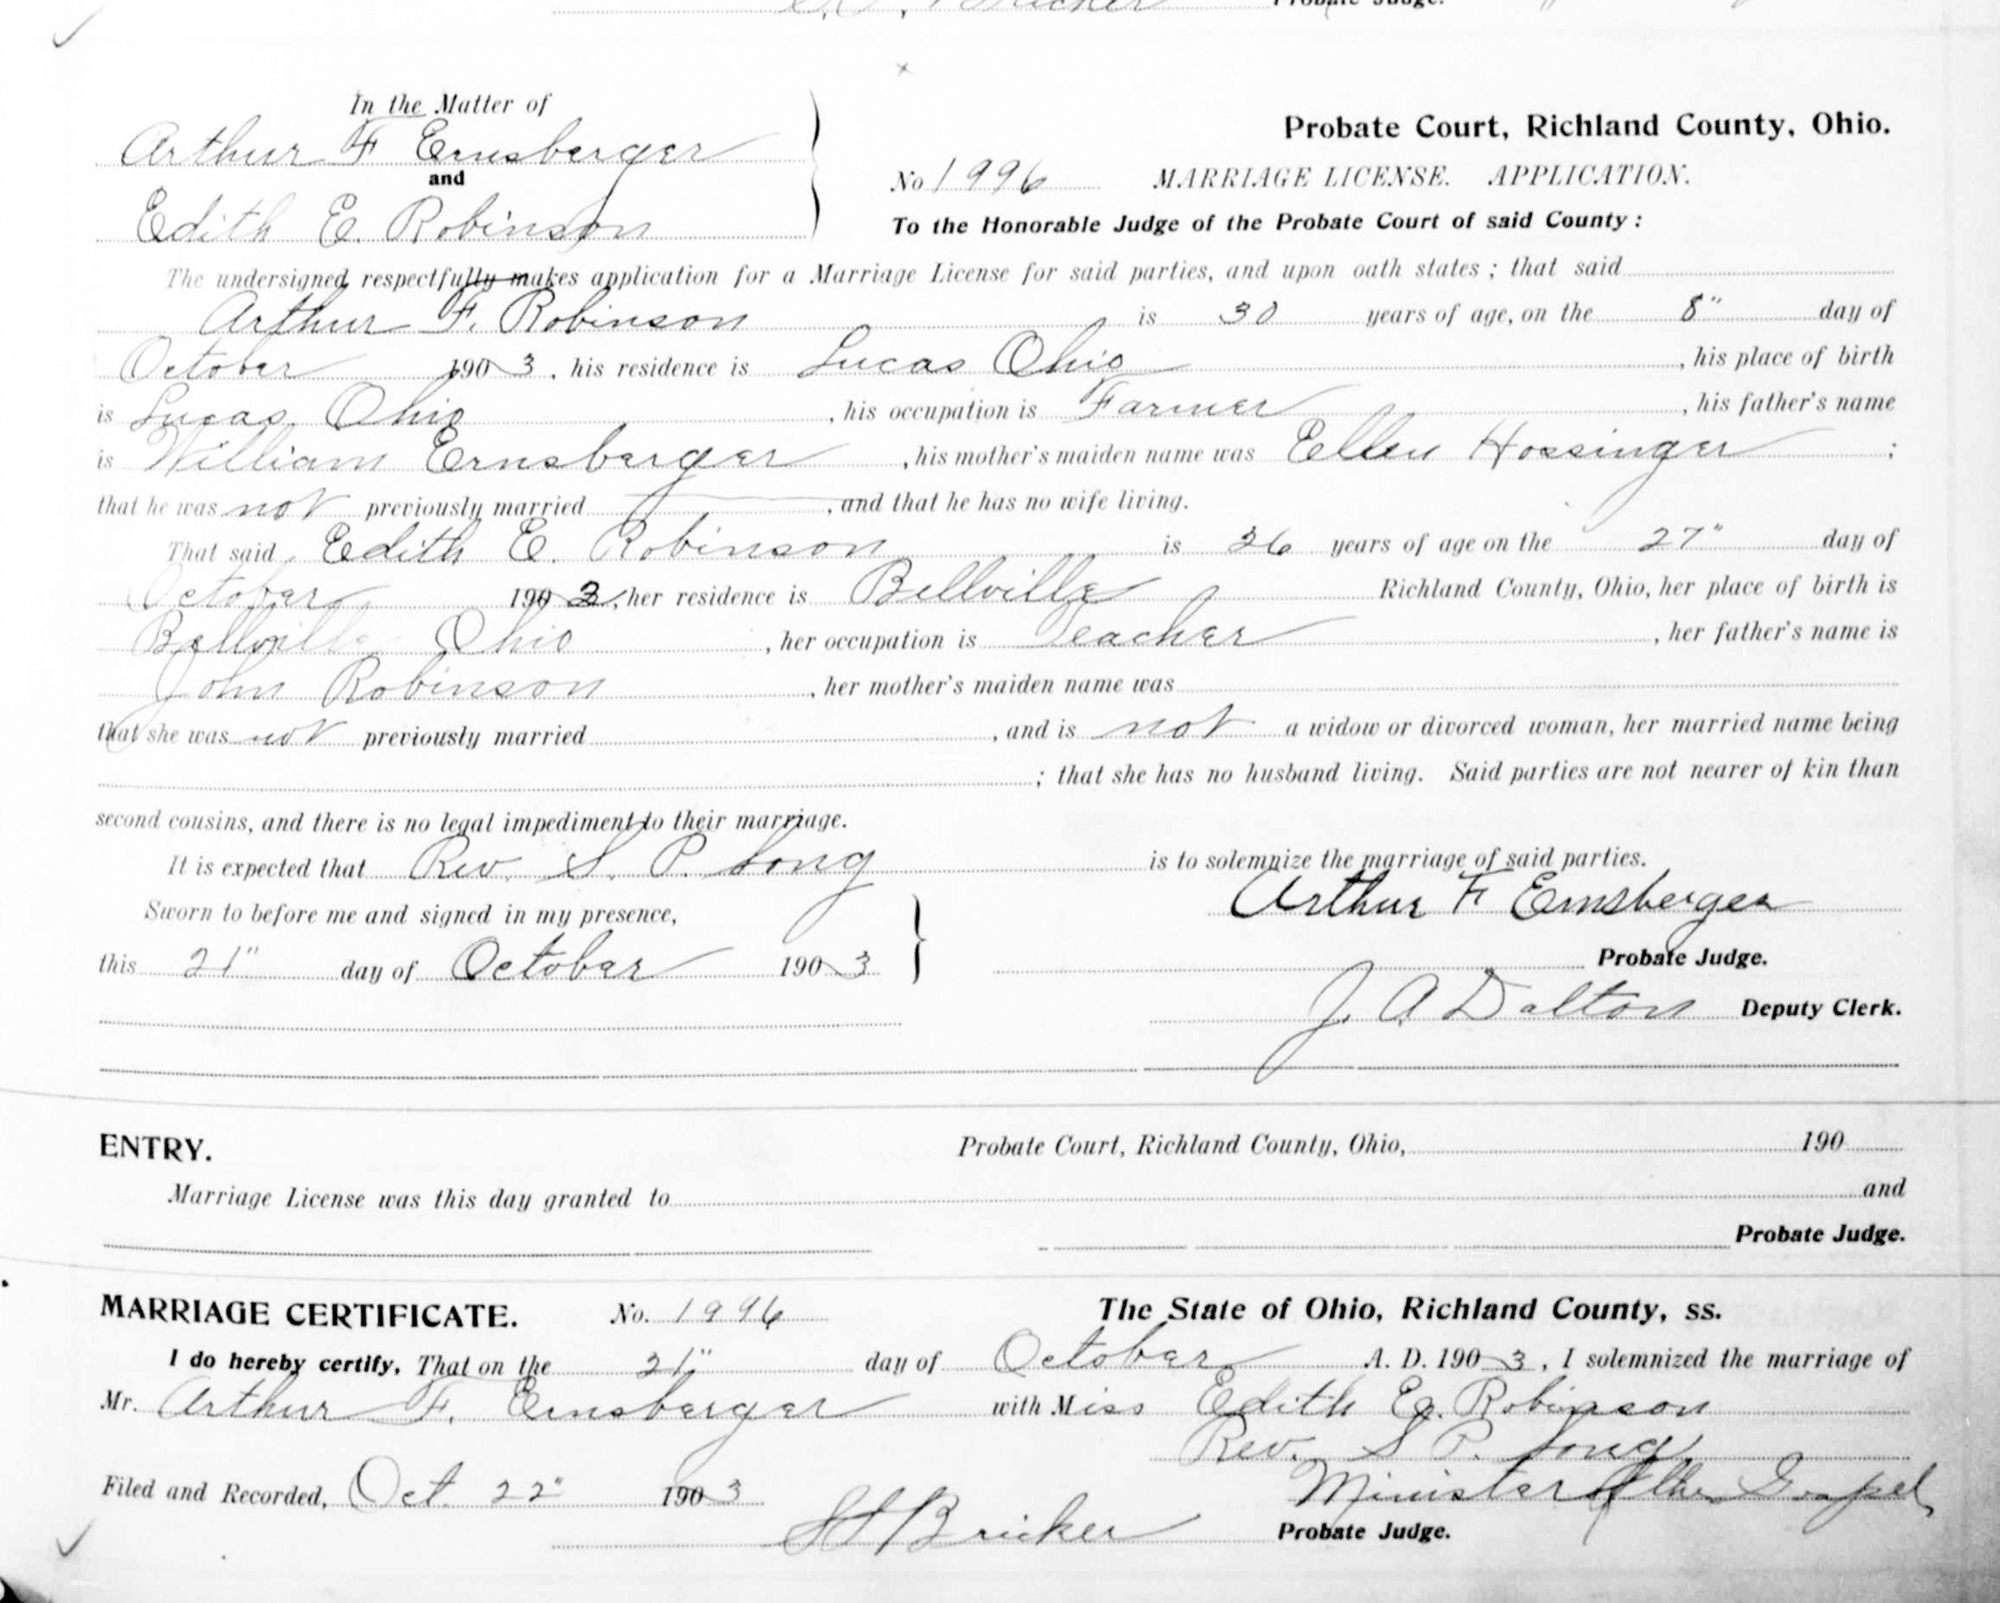 Bricker Probate Judge.
In the Matter of
Arthur F Ernsberger
and
Edith E. Robinson
Probate Court, Richland County, Ohio.
No 1996 MARRIAGE LICENSE. APPLICATION.
To the Honorable Judge of the Probate Court of said County:
The undersigned respectfully makes application for a Marriage License for said parties, and upon oath states; that said
Arthur F. Robinson is 30 years of age, on the 8" day of
October 1903, his residence is Lucas Ohio, his place of birth
is Lucas, Ohio, his occupation is Farmer, his father's name
is William Ernsberger, his mother's maiden name was Ellen Hossinger;
that he was not previously married, and that he has no wife living.
That said Edith E. Robinson is 26 years of age on the 27" day of
October 1903, her residence is Bellville Richland County, Ohio, her place of birth is
Bellville Ohio, her occupation is Teacher, her father's name is
John Robinson, her mother's maiden name was
that she was not previously married, and is not a widow or divorced woman, her married name being
; that she has no husband living. Said parties are not nearer of kin than
second cousins, and there is no legal impediment to their marriage.
It is expected that Rev. S. P. Long is to solemnize the marriage of said parties.
Sworn to before me and signed in my presence, Arthur F Ernsberger
this 21" day of October 1903 Probate Judge.
J. A Dalton Deputy Clerk.
ENTRY. Probate Court, Richland County, Ohio, 190
Marriage License was this day granted to and
Probate Judge.
MARRIAGE CERTIFICATE. No. 1996 The State of Ohio, Richland County, ss.
I do hereby certify, That on the 21" day of October A. D. 1903, I solemnized the marriage of
Mr. Arthur F. Ernsberger with Miss Edith E. Robinson
Rev. S P. Long
Filed and Recorded, Oct. 22" 1903 Minister of the Gospel
Bricker Probate Judge.